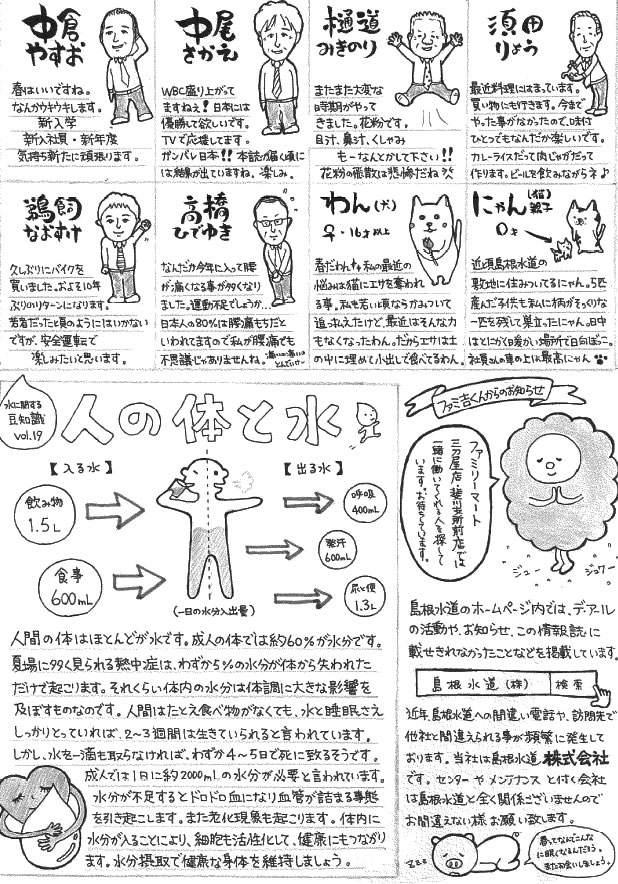 中倉
やすお
春はいいですね。
なんかウキウキします。
新入学
新入社員・新年度
気持ち新たに頑張ります。
中尾
さかえ
WBC盛り上がって
ますねえ！日本には
優勝して欲しいです。
TVで応援してます。
ガンバレ日本!!本誌が届く頃に
は結果が出ていますね。楽しみ。
樋道
みきのり
またまた大変な
時期がやって
きました。花粉です。
目汁、鼻汁、くしゃみ
もーなんとかして下さい!!
花粉の飛散は悲惨だね
須田
りょう
最近料理にはまっています。
買い物にも行きます。今まで
やった事がなかったので、味は
ひとつでもなんだか楽しいです。
カレーライスだって肉じゃがだって
作ります。ビールを飲みながらネ♪
鵜飼
なおすけ
久しぶりにバイクを
買いました。およそ10年
ぶりのリターンになります。
若者だった頃のようにはいかない
ですが、安全運転で
楽しみたいと思います。
高橋
ひでゆき
なんだか今年に入って腰
が痛くなる事が多くなり
ました。運動不足でしょうか…
日本人の80%は腰痛もちだと
いわれてますので私が腰痛でも
不思議じゃありませんね。
わん(犬)
♀・16才以上
春だわん 私の最近の
悩みは猫にエサを奪われ
る事。私も若い頃ならかみついて
追っ払えたけど、最近はそんな力
もなくなったわん。だからエサは土
の中に埋めて小出しで食べてるわん。
にゃん(猫)
親子
0才
近頃島根水道の
敷地に住みついてるにゃん。5匹
産んだ子供も私に柄がそっくりな
一匹を残して巣立ったにゃん。日中
はとにかく日当がい場所で日向ぼっこ。
社員さんの車の上は最高にゃん
水に関する
豆知識
vol.19
人の体と水
【入る水】
【出る水】
飲み物
1.5L
食事
600mL
呼吸
400mL
発汗
600mL
尿と便
1.3L
(一日の水分入出量)
人間の体はほとんどが水です。成人の体では約60%が水分です。
夏場に多く見られる熱中症は、わずか5%の水分が体から失われた
だけで起こります。それくらい体内の水分は体調に大きな影響を
及ぼすものなのです。人間はたとえ食べ物がなくても、水と睡眠さえ
しっかりとっていれば、2~3週間は生きていられると言われています。
しかし、水を一滴も取らなければ、わずか4~5日で死に致るそうです。
成人では1日に約2000mLの水分が必要と言われています。
水分が不足するとドロドロ血になり血管が詰まる事態
を引き起こします。また老化現象も起こります。体内に
水分が入ることにより、細胞も活性化して、健康にもつながり
ます。水分摂取で健康な身体を維持しましょう。
ファミ吉くんからのお知らせ
ファミリーマート
三刀屋店・斐川支所前店では
一緒に働いてくれる人を探して
います。お待ちしています。
ジュー
ジュワー
島根水道のホームページ内では、デアール
の活動や、お知らせ、この情報誌に
載せきれなかったことなどを掲載しています。
島根水道(株)
検索
近年、島根水道への間違い電話や、訪問先で
他社と間違えられる事が頻繁に発生して
おります。当社は島根水道株式会社
です。センターやメンテナンスと付く会社
は島根水道と全く関係ございませんので
お間違えない様お願い致します。
ZZZ
春ってなんでこんな
に眠くなるんだろう。
またお会いしましょう。